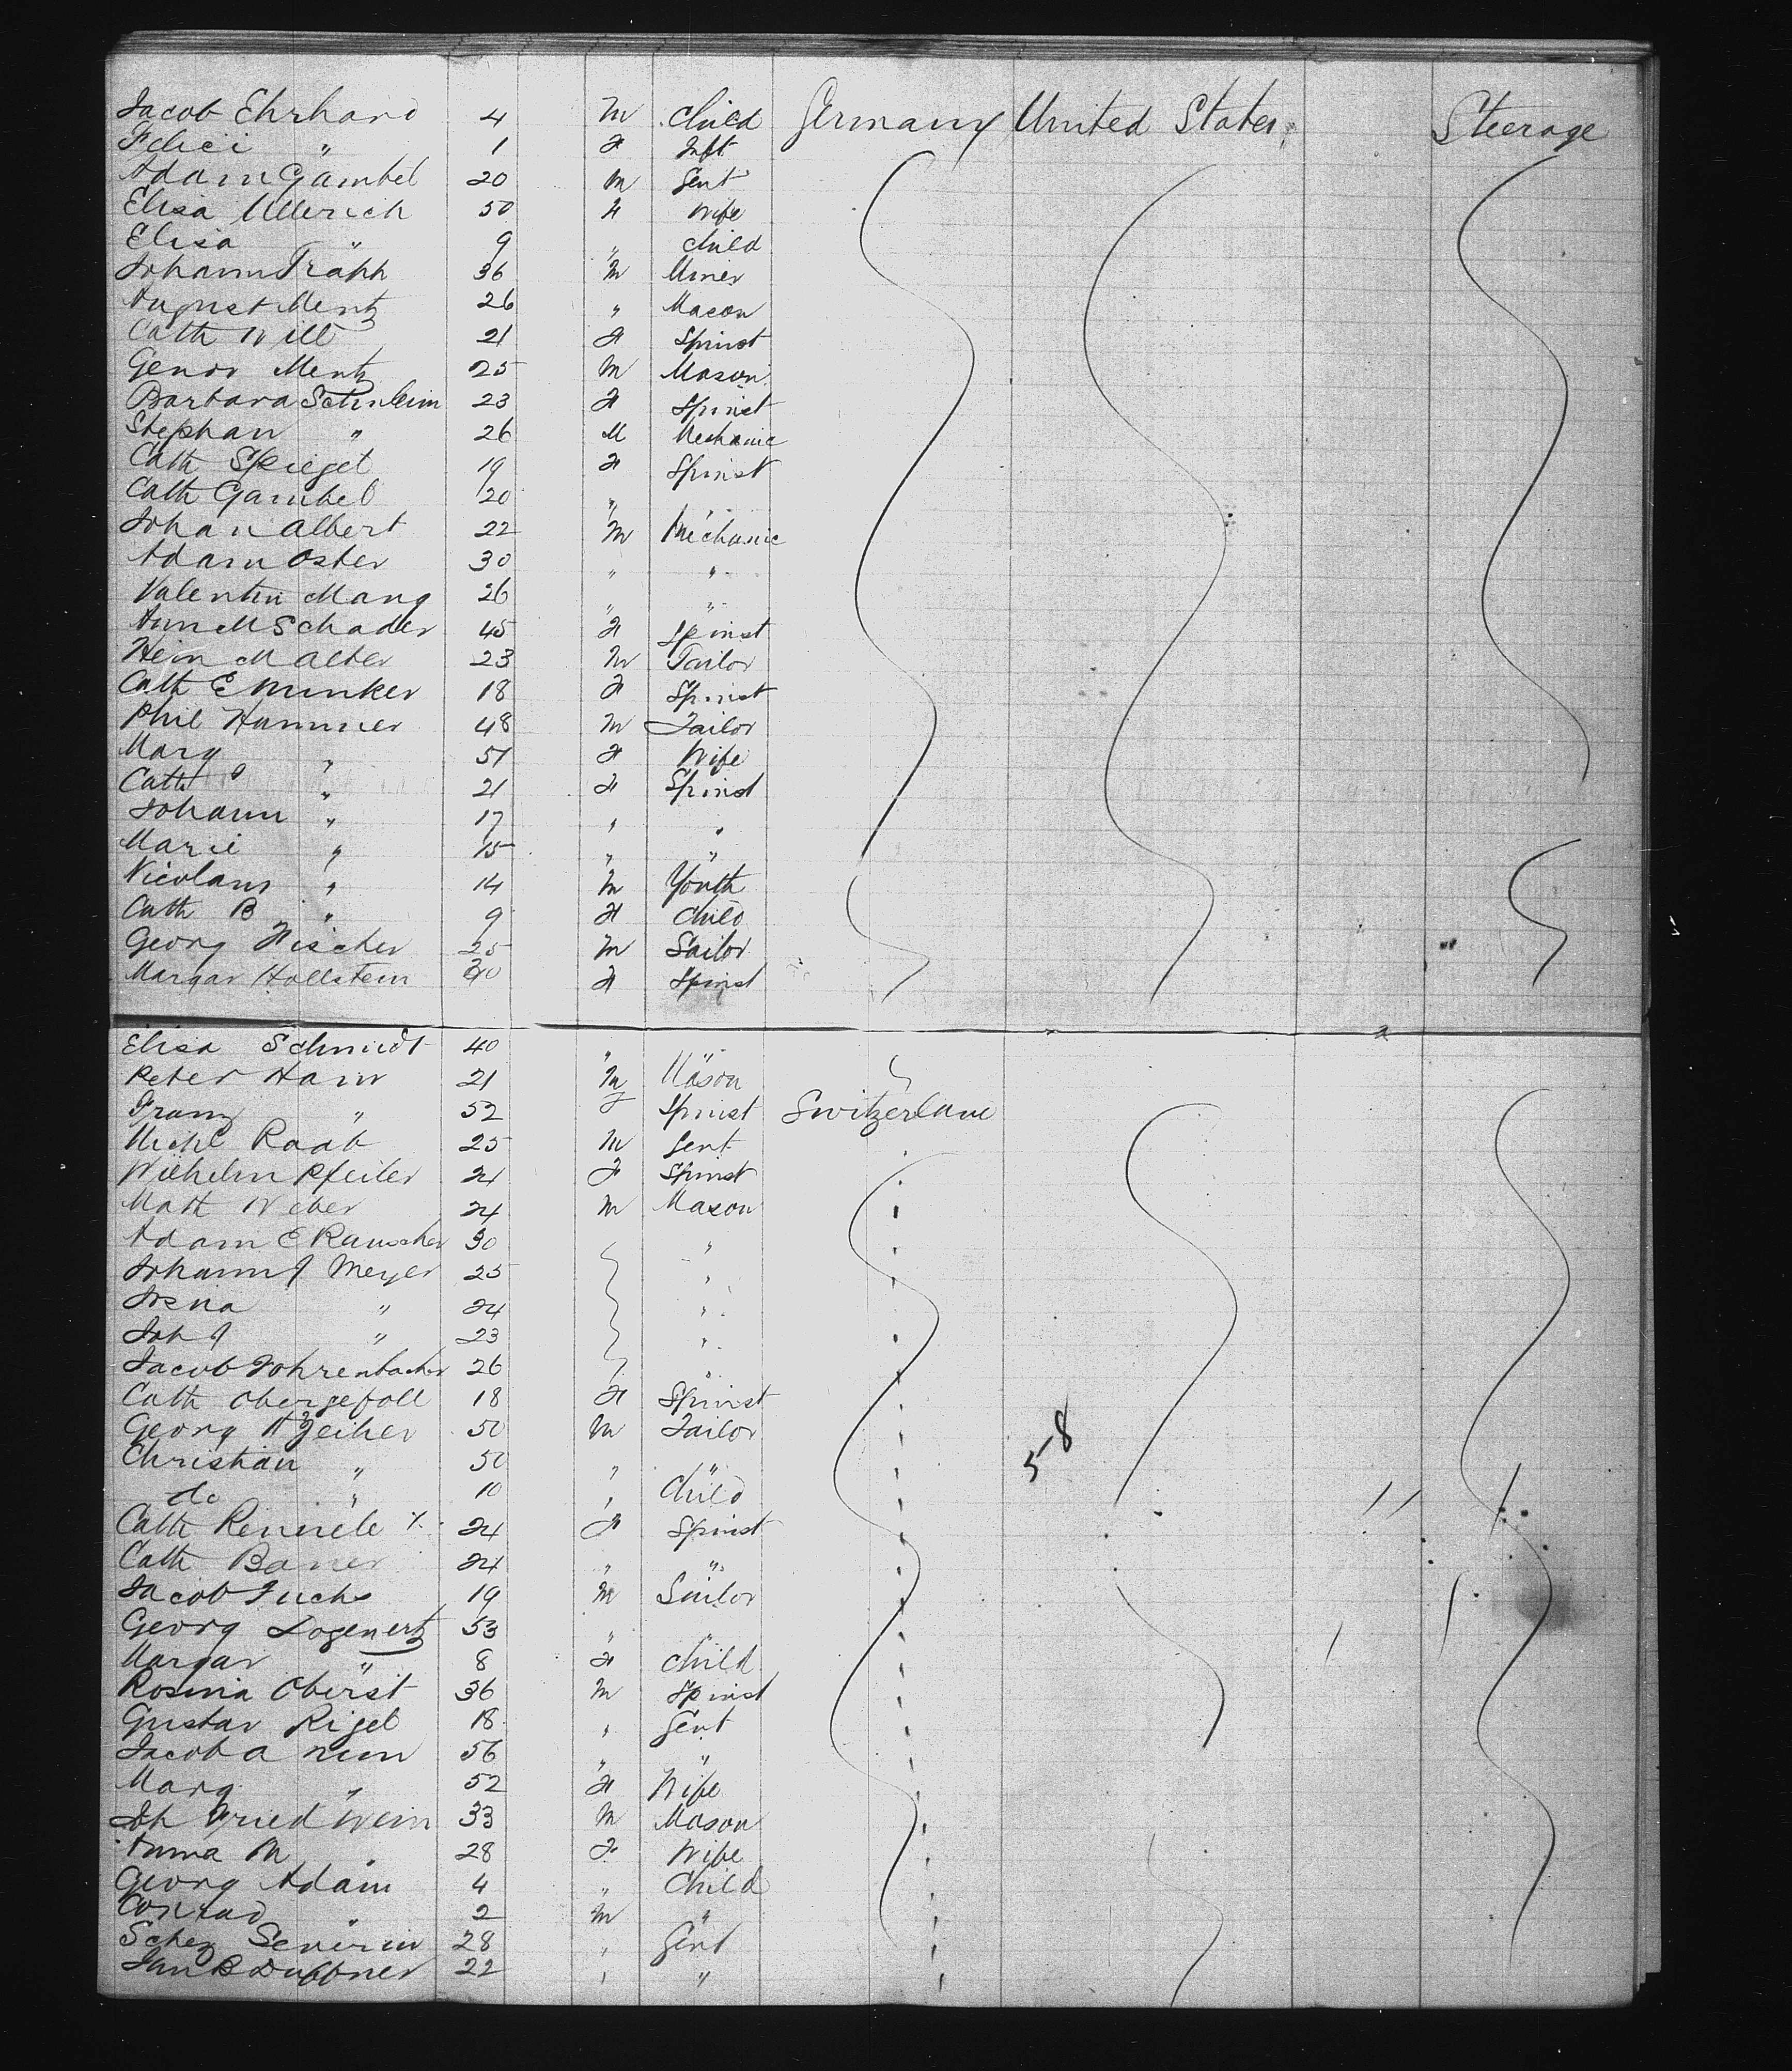 Jacob Ehrhard 4 M Child Germany United States Steerage
Felici " 1 F Inft
Adam Gambel 20 M Gent
Elisa Ullerich 50 F Wife
Elisa " 9 " Child
Johann Trapp 36 M Miner
August Mentz 26 " Mason
Cath Will 21 F Spinst
Georg Mentz 25 M Mason
Barbara 23 F Spinst
Stephan " 26 M Mechanic
Cath Spiegel 19 F Spinst
Cath Gambel 20 " "
Johan Albert 22 M Mechanic
Adam Oster 30 " "
Valentin Mang 26 " "
Ann M Schader 45 F Spinst
Hein Malter 23 M Tailor
Cath E Munker 18 F Spinst
Phil Hammer 48 M Tailor
Marg " 51 F Wife
Cath " 21 F Spinst
Johann " 17 " "
Marie " 15 " "
Nicolaus " 14 M Youth
Cath B " 9 F Child
Georg Fischer 25 M Sailor
Margar Hollstein F Spinst
Elisa Schmidt 40 "
Peter Hann 21 M Mason
Franz " 52 F Spinst Switzerland
Michl Raab 25 M Gent
Wilhelm Pfeiler 24 F Spinst
Math Weber 24 M Mason
Adam E Rauscher 30 "
Johann J Meyer 25 "
" 24 "
Joh J " 23 "
Jacob Fohrenbacher 26 "
Cath Obergefoll 18 F Spinst
Georg A Zeiher 50 M Tailor
Christian " 50 " "
do " 10 " Child
5-8
Cath 24 F Spinst
Cath Bauer 24 " "
Jacob Fuchs 19 M Sailor
Georg Logenertz 53 " "
Margar " 8 F Child
Rosina Oberst 36 M Spinst
Gustav Rigel 18 " Gent
Jacob A 56 " "
Marg " 52 F Wife
Joh Fried Wein 33 M Mason
Anna M " 28 F Wife
Georg Adam 4 " Child
Conrad " 2 M "
Severin 28 " Gent
B Duffner 22 " "